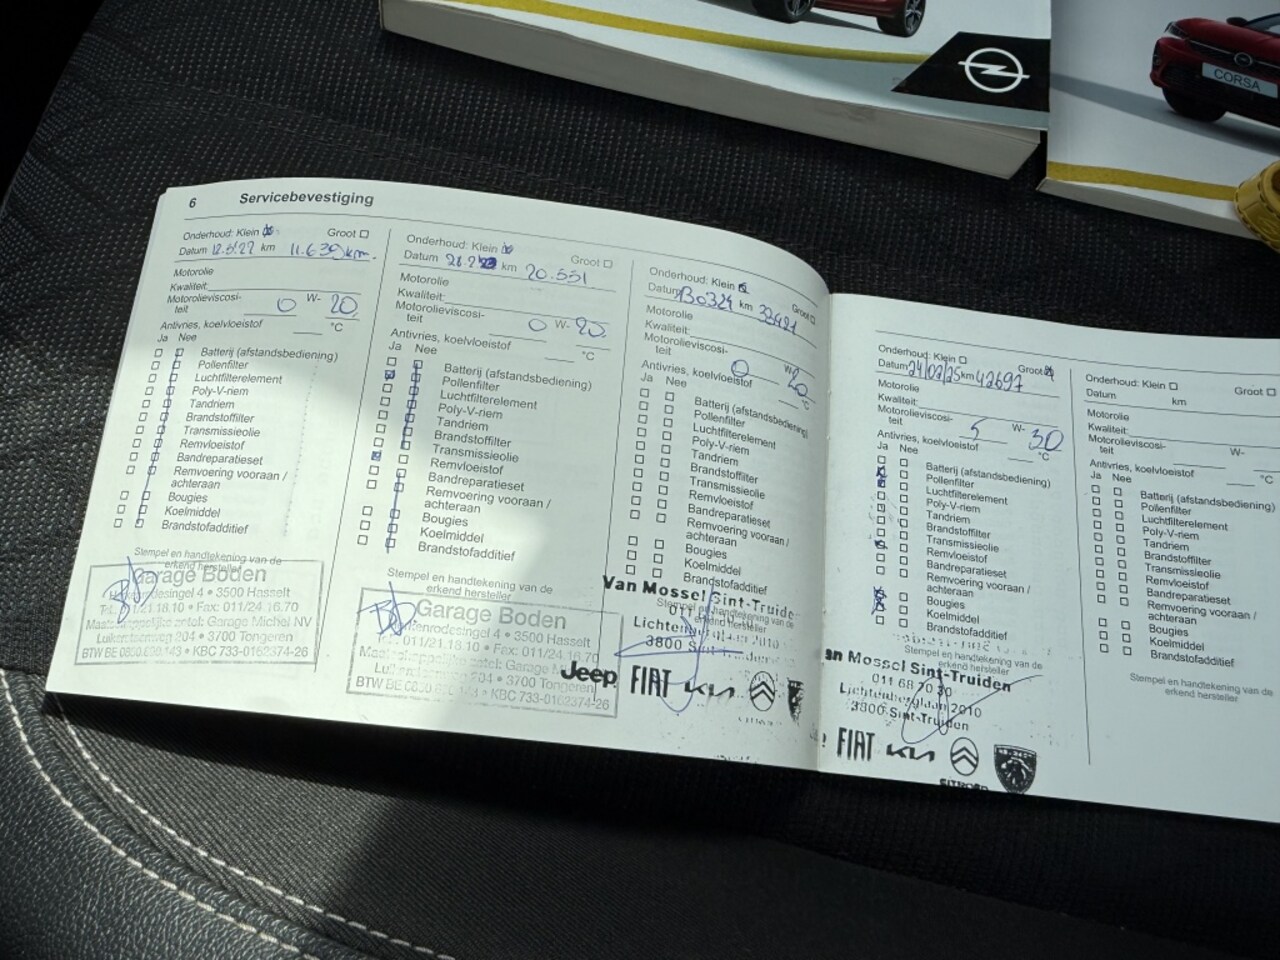 CORSA
6 Servicebevestiging
Onderhoud: Klein Groot
Datum 12.5.22 km 11.639 km.
Motorolie
Kwaliteit:
Motorolieviscosi-
teit 0 W- 20
Antivries, koelvloeistof °C
Ja Nee
Batterij (afstandsbediening)
Pollenfilter
Luchtfilterelement
Poly-V-riem
Tandriem
Brandstoffilter
Transmissieolie
Remvloeistof
Bandreparatieset
Remvoering vooraan /
achteraan
Bougies
Koelmiddel
Brandstofadditief
Stempel en handtekening van de
erkend hersteller
Garage Boden
4 • 3500 Hasselt
• Fax: 011/24.16.70
zetel: Garage Michel NV
204 • 3700 Tongeren
BTW BE • KBC 733-0162374-26
Onderhoud: Klein Groot
Datum km 20.551
Motorolie
Kwaliteit:
Motorolieviscosi-
teit 0 W- 20
Antivries, koelvloeistof °C
Ja Nee
Batterij (afstandsbediening)
Pollenfilter
Luchtfilterelement
Poly-V-riem
Tandriem
Brandstoffilter
Transmissieolie
Remvloeistof
Bandreparatieset
Remvoering vooraan /
achteraan
Bougies
Koelmiddel
Brandstofadditief
Stempel en handtekening van de
erkend hersteller
Garage Boden
4 • 3500 Hasselt
011/21.18.10 • Fax: 011/24.16.70
zetel: Garage
204 • 3700 Tongeren
BTW BE • KBC 733-0162374-26
Onderhoud: Klein Groot
Datum 130324 km
Motorolie
Kwaliteit:
Motorolieviscosi-
teit 0 W- 20
Antivries, koelvloeistof °C
Ja Nee
Batterij (afstandsbediening)
Pollenfilter
Luchtfilterelement
Poly-V-riem
Tandriem
Brandstoffilter
Transmissieolie
Remvloeistof
Bandreparatieset
Remvoering vooraan /
achteraan
Bougies
Koelmiddel
Brandstofadditief
Stempel en handtekening van de
erkend hersteller
Van Mossel Sint-Truide
011
3800
Jeep FIAT KIA
Onderhoud: Klein Groot
Datum 24/02/25 km 42697
Motorolie
Kwaliteit:
Motorolieviscosi-
teit 5 W- 30
Antivries, koelvloeistof °C
Ja Nee
Batterij (afstandsbediening)
Pollenfilter
Luchtfilterelement
Poly-V-riem
Tandriem
Brandstoffilter
Transmissieolie
Remvloeistof
Bandreparatieset
Remvoering vooraan /
achteraan
Bougies
Koelmiddel
Brandstofadditief
Stempel en handtekening van de
erkend hersteller
an Mossel Sint-Truiden
011 68 70 30
Lichtenberglaan 2010
3800 Sint-Truiden
FIAT KIA
CITROËN
Onderhoud: Klein Groot
Datum km
Motorolie
Kwaliteit:
Motorolieviscosi-
teit W-
Antivries, koelvloeistof °C
Ja Nee
Batterij (afstandsbediening)
Pollenfilter
Luchtfilterelement
Poly-V-riem
Tandriem
Brandstoffilter
Transmissieolie
Remvloeistof
Bandreparatieset
Remvoering vooraan /
achteraan
Bougies
Koelmiddel
Brandstofadditief
Stempel en handtekening van de
erkend hersteller